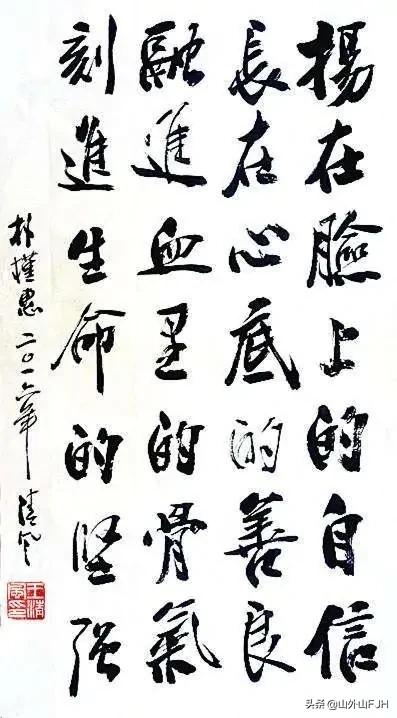 揚在臉上的自信
長在心底的善良
融進血里的骨氣
刻進生命的坚强
朴槿惠 二〇一六年 清风
王清風印
头条@山外山FJH